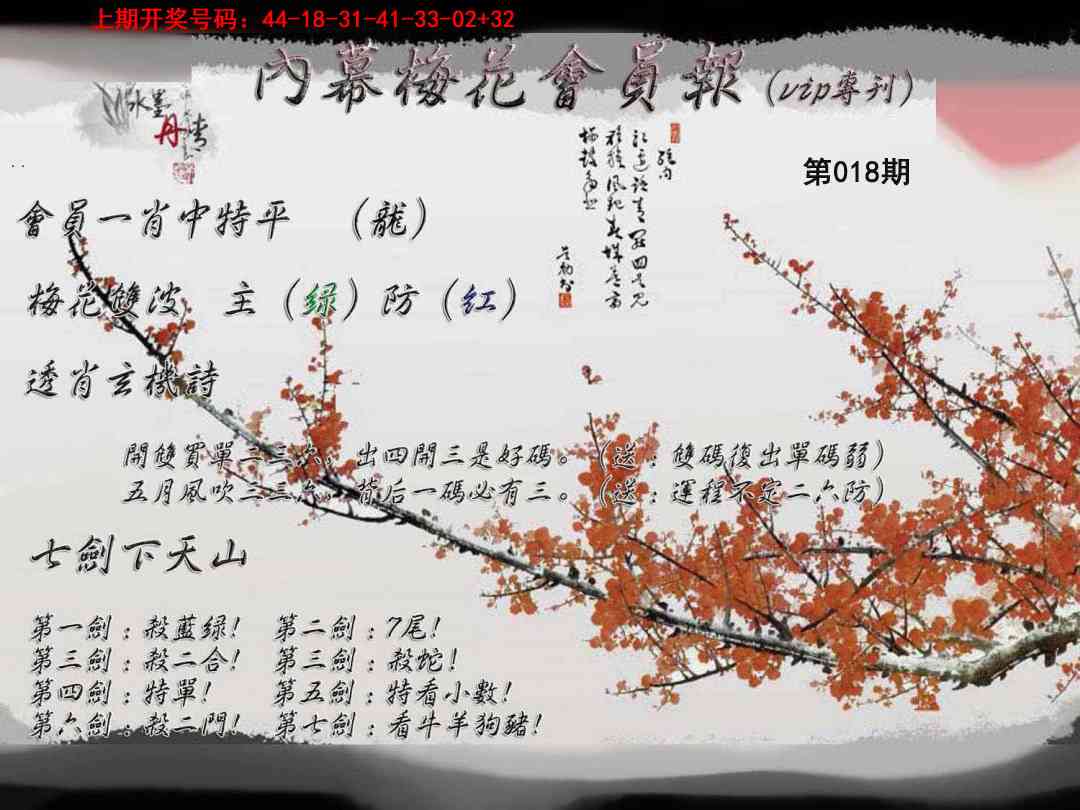 上期开奖号码：44-18-31-41-33-02+32
內幕梅花會員報（vip專刊）
水墨
丹青
第018期
會員一肖中特平　（龍）
梅花雙波　主（绿）防（红）
透肖玄機詩
開雙買單二三六，出四開三是好碼。（送：雙碼復出單碼弱）
五月風吹三三六，背后一碼必有三。（送：運程不定二六防）
七劍下天山
第一劍：殺藍绿！　第二劍：7尾！
第三劍：殺二合！　第三劍：殺蛇！
第四劍：特單！　第五劍：特看小數！
第六劍：殺二門！　第七劍：看牛羊狗豬！